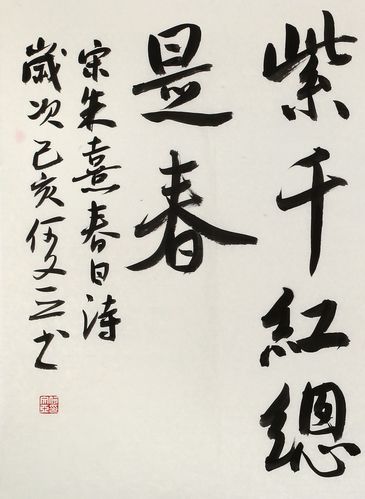 紫千紅總
是春
宋朱熹春日詩
歲次己亥何書